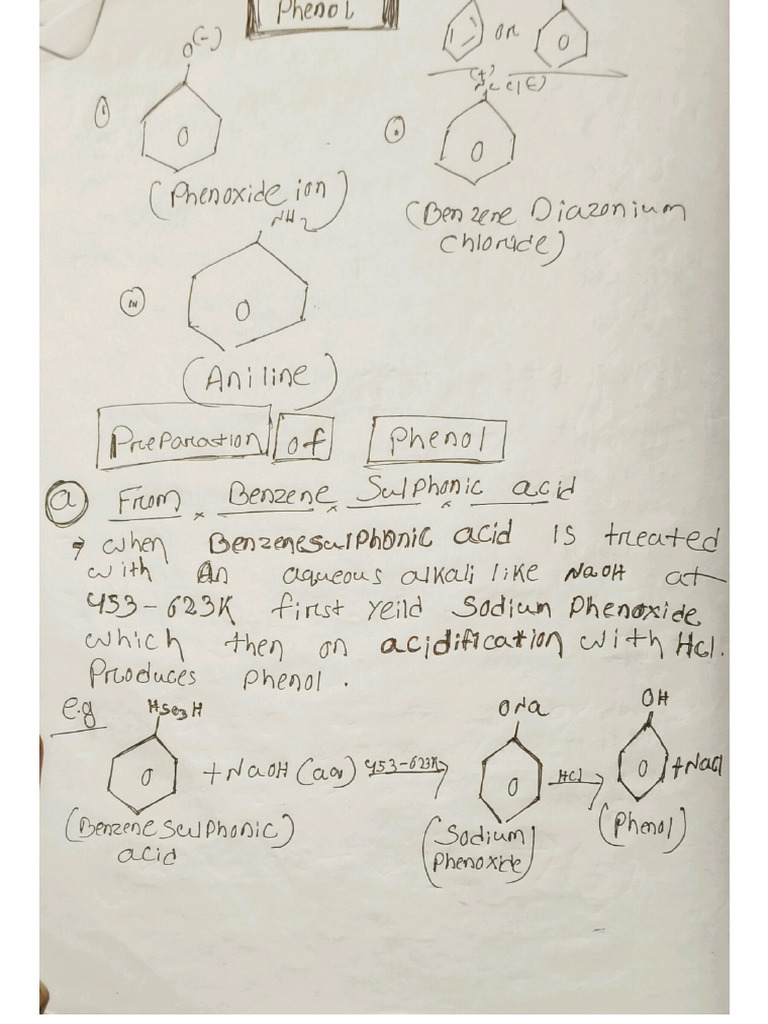 Phenol
or
O(-)
(Phenoxide ion)
(Benzene Diazonium
Chloride)
NH2
(Aniline)
Preparation of Phenol
(a) From Benzene Sulphonic acid
→ when Benzenesulphonic acid is treated
with An aqueous alkali like NaOH at
453-623K first yeild Sodium Phenoxide
which then on acidification with HCl.
Produces phenol.
e.g
ONa
OH
+ NaOH (aq) 453-623K
HCl
+ NaCl
(Benzene sulphonic)
acid
(Sodium
Phenoxide)
(Phenol)